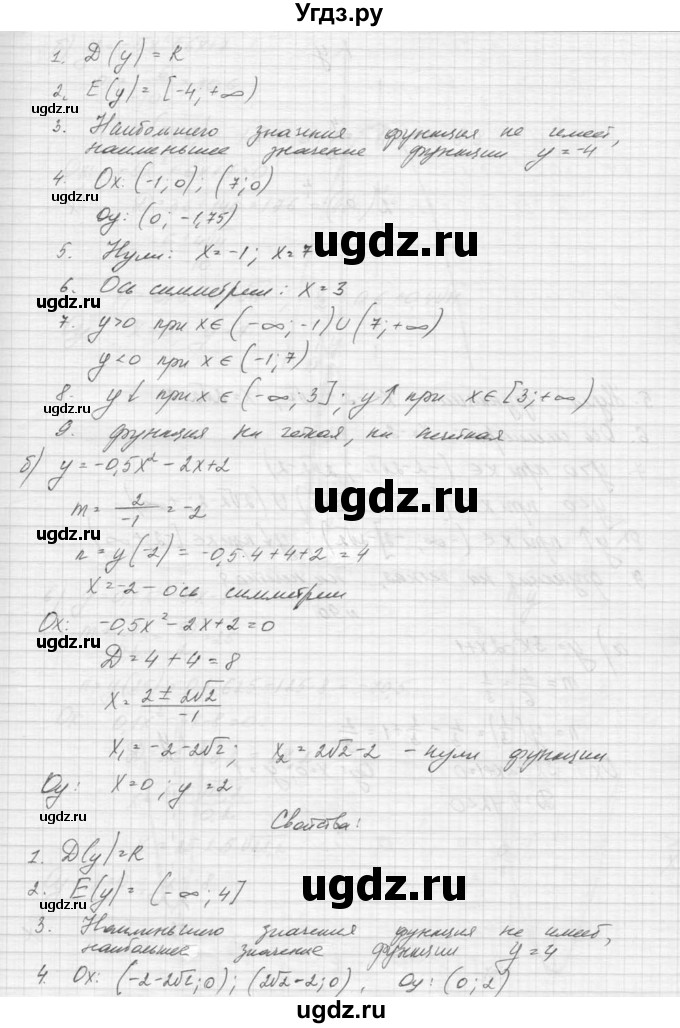 Угдз.ру
1. D(y) = R
2. E(y) = [-4; +∞)
3. Наибольшего значения функция не имеет,
наименьшее значение функции y = -4
4. Ox: (-1; 0); (7; 0)
Oy: (0; -1,75)
5. Нули: x = -1; x = 7
6. Ось симметрии: x = 3
7. y>0 при x∈(-∞; -1)∪(7; +∞)
y<0 при x∈(-1; 7)
8. y↓ при x∈(-∞, 3]; y↑ при x∈[3; +∞)
9. функция ни четная, ни нечетная
б) y = -0,5x² - 2x + 2
m = 2/-1 = -2
n = y(-2) = -0,5·4 + 4 + 2 = 4
x = -2 - ось симметрии
Ox: -0,5x² - 2x + 2 = 0
D = 4 + 4 = 8
x = 2 ± 2√2/-1
x₁ = -2 - 2√2; x₂ = 2√2 - 2 - нули функции
Oy: x = 0; y = 2
Свойства:
1. D(y) = R
2. E(y) = (-∞; 4]
3. Наименьшего значения функция не имеет,
наибольшее значение функции y = 4
4. Ox: (-2-2√2; 0); (2√2-2; 0), Oy: (0; 2)
ugdz.ru
ugdz.ru
ugdz.ru
ugdz.ru
ugdz.ru
ugdz.ru
ugdz.ru
ugdz.ru
ugdz.ru
ugdz.ru
ugdz.ru
ugdz.ru
ugdz.ru
ugdz.ru